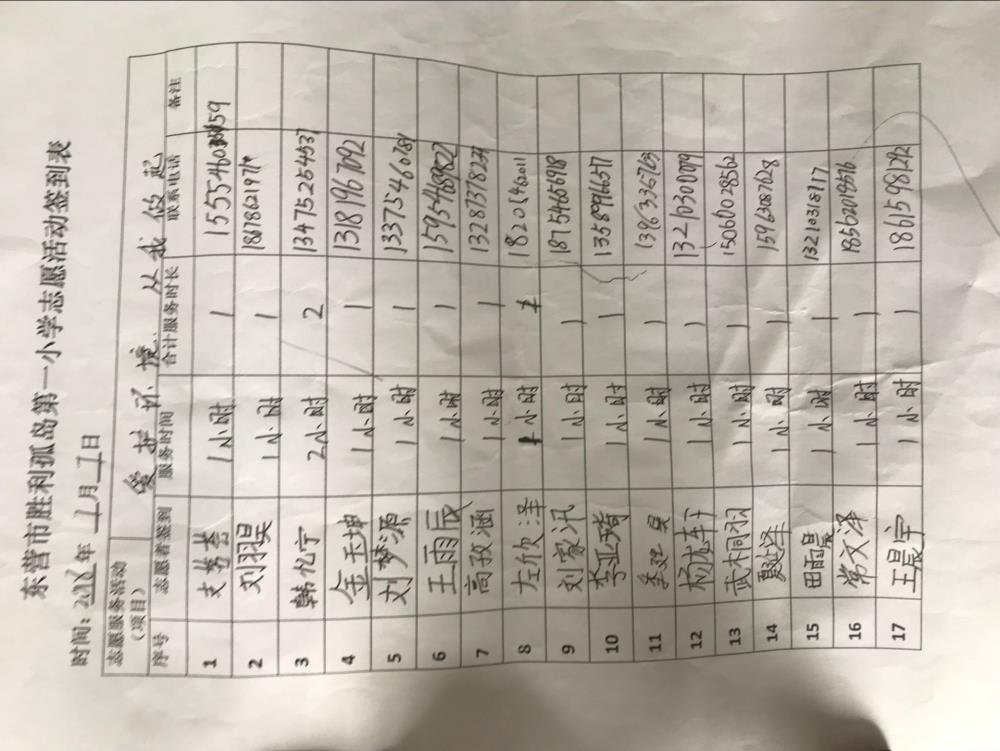 东营市胜利孤岛第一小学志愿活动签到表
时间：2018年1月7日
志愿服务活动（项目） 爱护环境 从我做起
序号 志愿者签到 服务时间 合计服务时长 联系电话 备注
1 1小时 1
2 刘羽昊 1小时 1
3 韩亿宁 2小时 2 13475254337
4 金玉坤 1小时 1 13181967092
5 刘梦源 1小时 1
6 王雨辰 1小时 1
7 高孜涵 1小时 1
8 左欣泽 1小时 1
9 刘家汛 1小时 1 18754656918
10 李亚琦 1小时 1 13589966577
11 1小时 1 13963356763
12 1小时 1 13210300079
13 1小时 1 15060028562
14 1小时 1 15963087628
15 田雷昊 1小时 1 13210318717
16 常文泽 1小时 1
17 王晨宇 1小时 1 18615981292